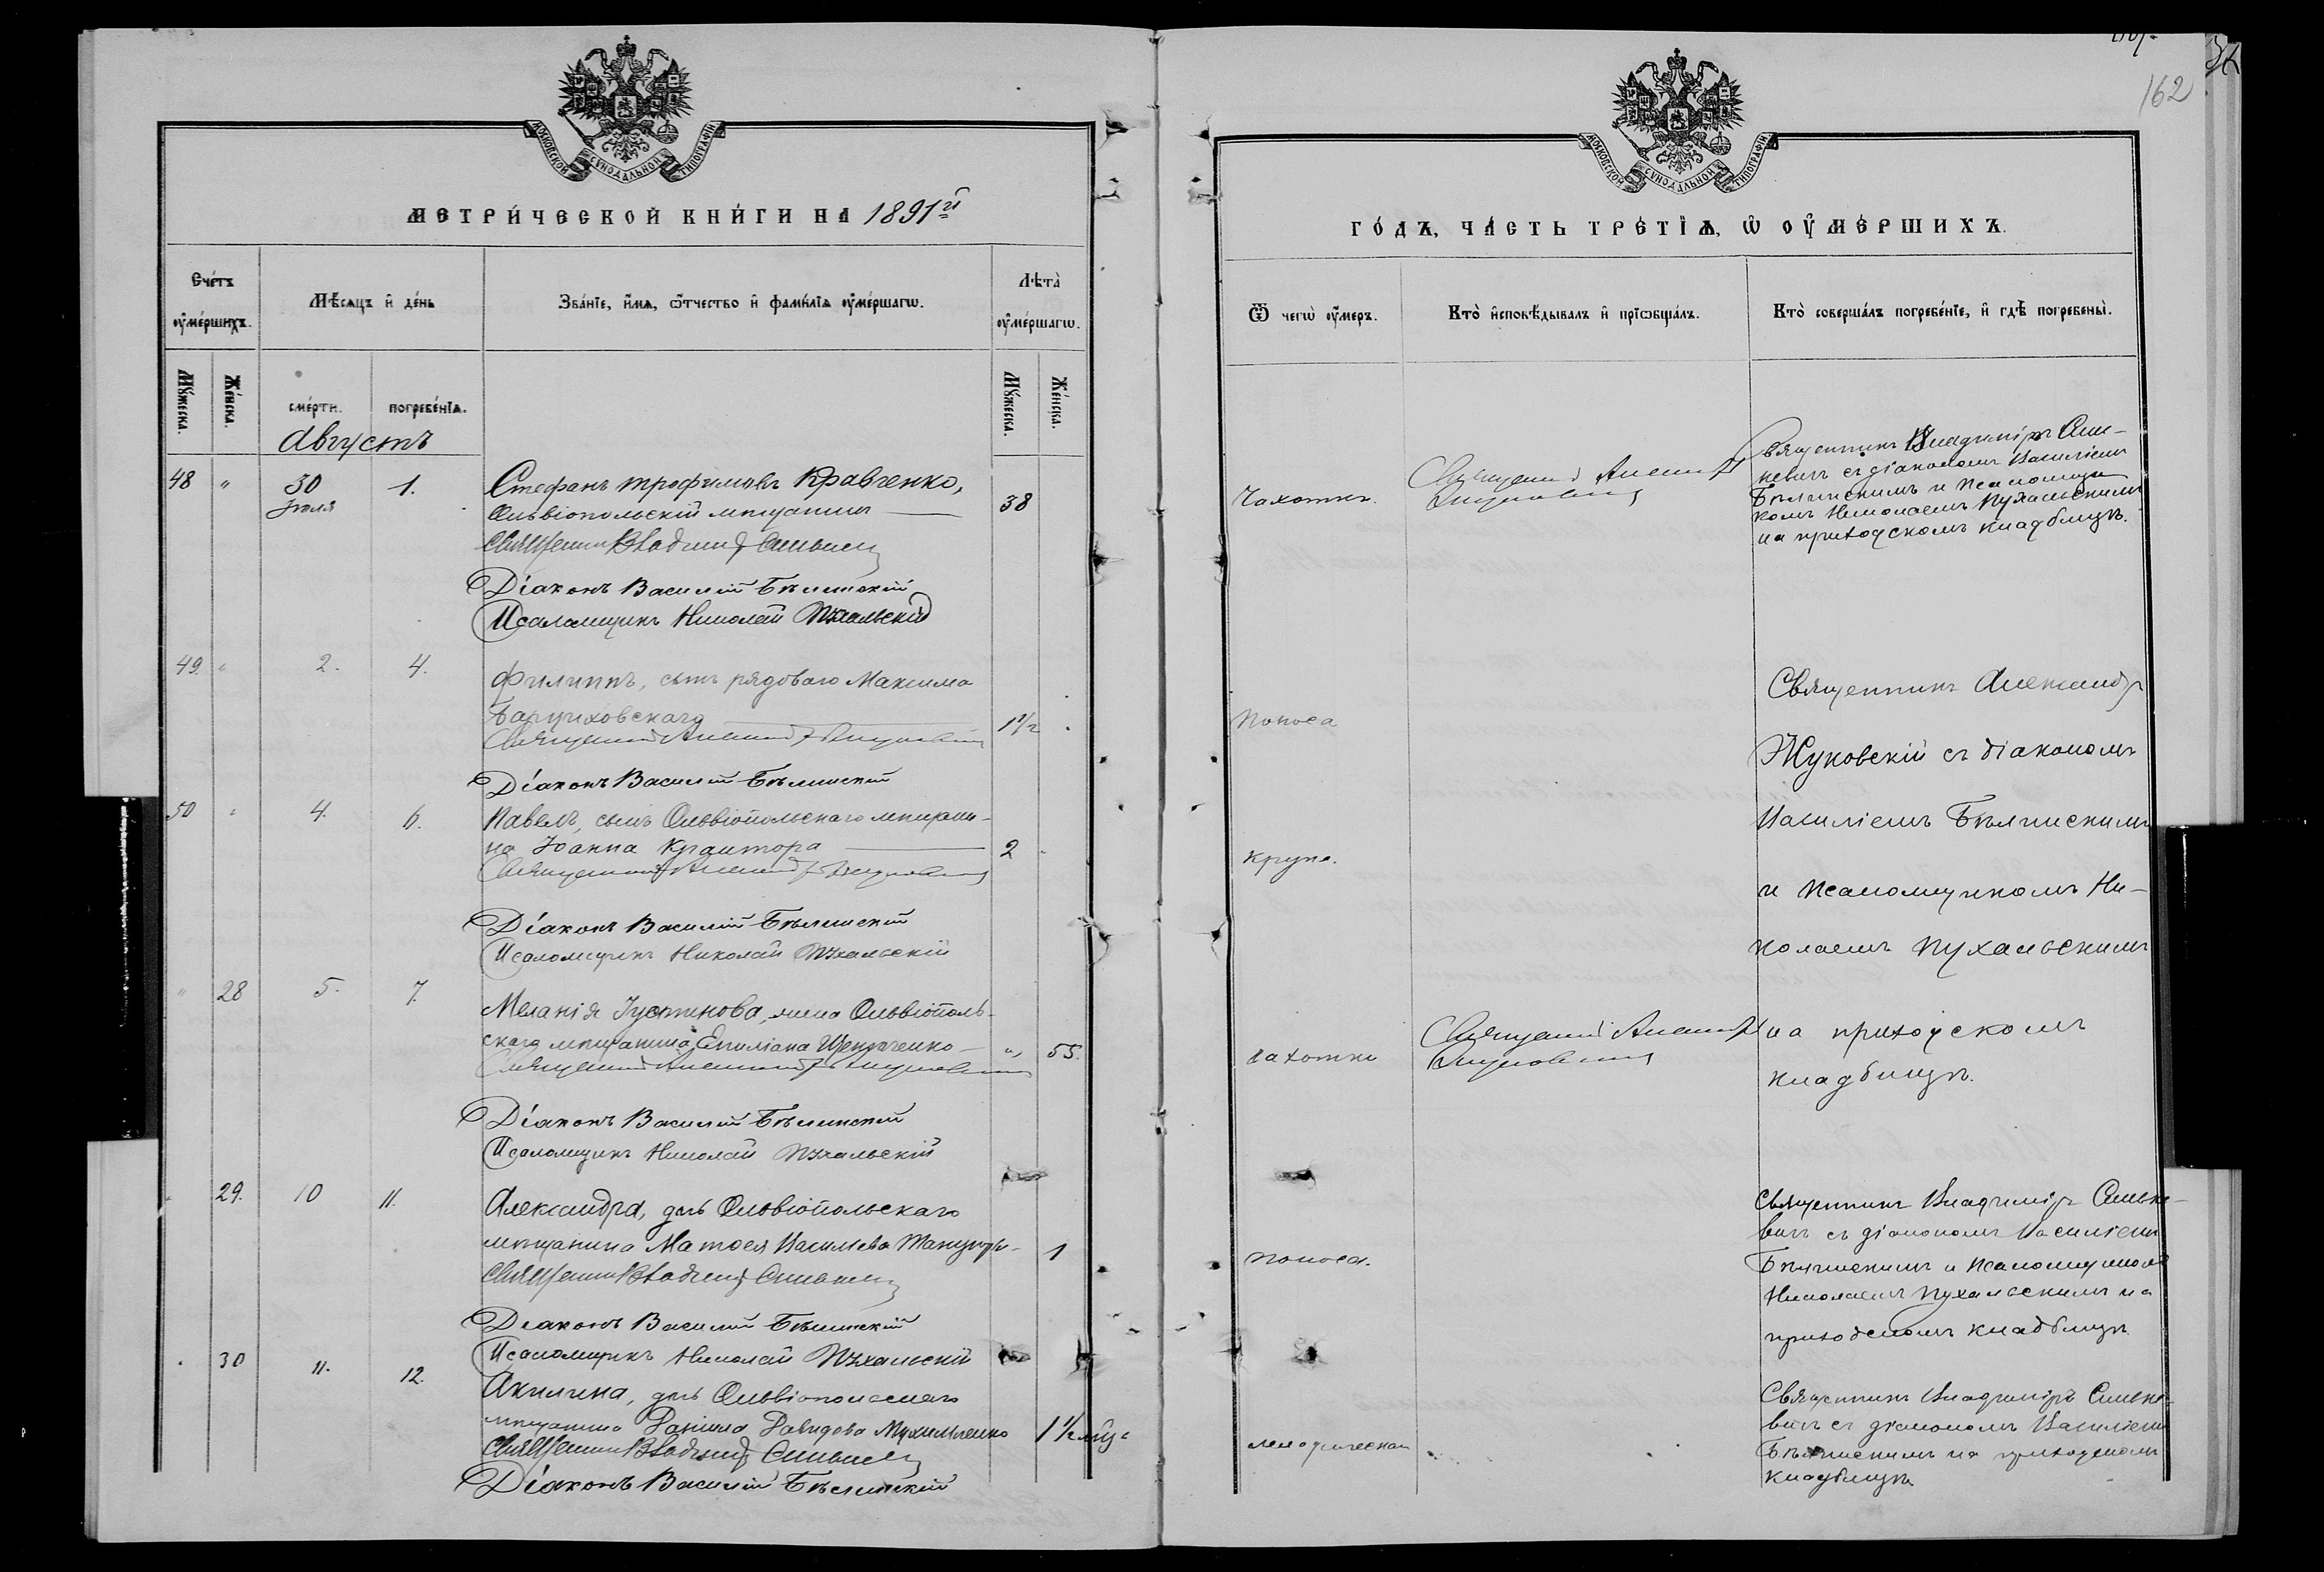 МОСКОВСКОЙ СѴНОДАЛЬНОЙ ТИПОГРАФІИ
МЕТРИ́ЧЕСКОЙ КНИ́ГИ НА 1891й
Сче́тъ оу҆ме́ршихъ.
Мѣ́сяцъ и҆ де́нь
Зва́нїе, и҆́мя, ѻ҆́тчество и҆ фами́лїя оу҆ме́ршагѡ.
Лѣта̀ оу҆ме́ршагѡ.
Мꙋ́жеска.
Же́нска.
сме́рти.
погребе́нїѧ.
Мꙋ́жеска.
Же́нска.
Августъ
48 " 30 Іюля 1.
Стефанъ Трофимовъ Кравченко,
Ольвіопольскій мѣщанинъ — 38
Священникъ Владимір Синькевич
Діаконъ Василій Бѣлинскій
Псаломщикъ Николай Пухальскій
49. " 2. 4.
Филиппъ, сынъ рядоваго Максима
1½
Священник Александр
Діаконъ Василій Бѣлинскій
50 " 4. 6.
Павелъ, сынъ Ольвіопольскаго мѣщани-
на Іоанна — 2
Священник Александр
Діаконъ Василій Бѣлинскій
Псаломщикъ Николай Пухальскій
" 28 5. 7.
Меланія Іустинова, жена Ольвіополь-
скаго мѣщанина Емиліана — " 55.
Священник Александр
Діаконъ Василій Бѣлинскій
Псаломщикъ Николай Пухальскій
" 29. 10 11.
Александра, дочь Ольвіопольскаго
мѣщанина Матѳея Васильева 1
Священникъ Владимір Синькевич
Діаконъ Василій Бѣлинскій
Псаломщикъ Николай Пухальскій
" 30 11. 12.
Акилина, дочь Ольвіопольскаго
мѣщанина Даніила Давидова 1½
Священникъ Владимір Синькевич
Діаконъ Василій Бѣлинскій
162
МОСКОВСКОЙ СѴНОДАЛЬНОЙ ТИПОГРАФІИ
ГО́ДЪ, ЧА́СТЬ ТРЕ́ТЇѦ, Ѽ ОУ҆МЕ́РШИХЪ.
Ѿ чегѡ̀ оу҆́меръ.
Кто̀ и҆сповѣ́дывалъ и҆ прїѡбща́лъ.
Кто̀ соверша́лъ погребе́нїе, и҆ гдѣ̀ погребены̀.
Чахотки.
Священник Александр
Священникъ Владиміръ Синь-
кевичъ съ діакономъ Василіемъ
Бѣлинскимъ и псаломщи-
комъ Николаемъ Пухальскимъ
на приходскомъ кладбищѣ.
поноса
Священникъ Александръ
Жуковскій съ діакономъ
Василіемъ Бѣлинскимъ
крупа.
и псаломщикомъ Ни-
колаемъ Пухальскимъ
чахотки
Священник Александр
на приходскомъ
кладбищѣ.
поноса.
Священникъ Владиміръ Синьке-
вичъ съ діакономъ Василіемъ
Бѣлинскимъ и псаломщикомъ
Николаемъ Пухальскимъ на
приходскомъ кладбищѣ
Священникъ Владиміръ Синьке-
вичъ съ діакономъ Василіемъ
Бѣлинскимъ на приходскомъ
кладбищѣ